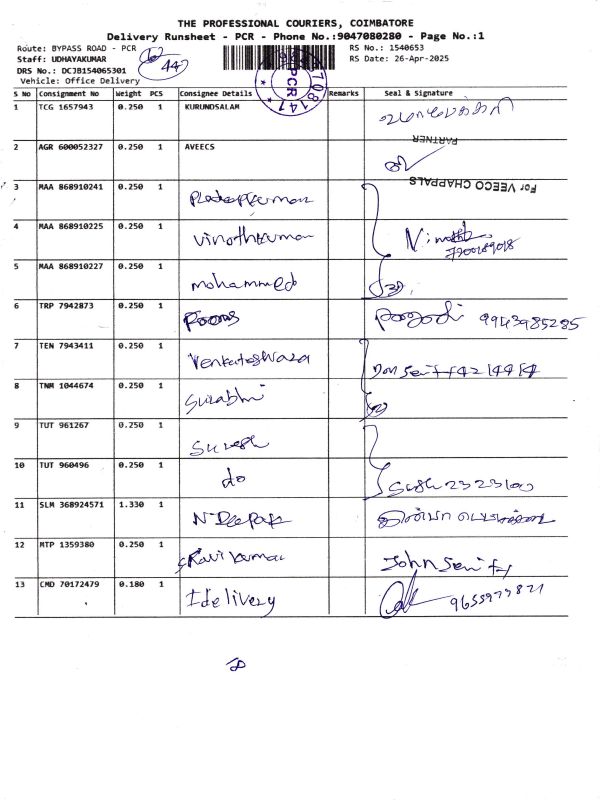 THE PROFESSIONAL COURIERS, COIMBATORE
Delivery Runsheet - PCR - Phone No.:9047080280 - Page No.:1
Route: BYPASS ROAD - PCR RS No.: 1540653
Staff: UDHAYAKUMAR RS Date: 26-Apr-2025
DRS No.: DCJB154065301
Vehicle: Office Delivery
S No Consignment No Weight PCS Consignee Details Remarks Seal & Signature
1 TCG 1657943 0.250 1 KURUNDSALAM
PARTNER
2 AGR 600052327 0.250 1 AVEECS
For VEECO CHAPPALS
3 MAA 868910241 0.250 1 Pradeepkumar
4 MAA 868910225 0.250 1 vinothkumar
5 MAA 868910227 0.250 1 mohammed
6 TRP 7942873 0.250 1 9943985285
7 TEN 7943411 0.250 1 Venkateshwara
8 TNM 1044674 0.250 1 Surabhi
9 TUT 961267 0.250 1 Suresh
10 TUT 960496 0.250 1 do
11 SLM 368924571 1.330 1 N Deepak
12 MTP 1359380 0.250 1 Ravikumar
13 CMD 70172479 0.180 1 Idelivery